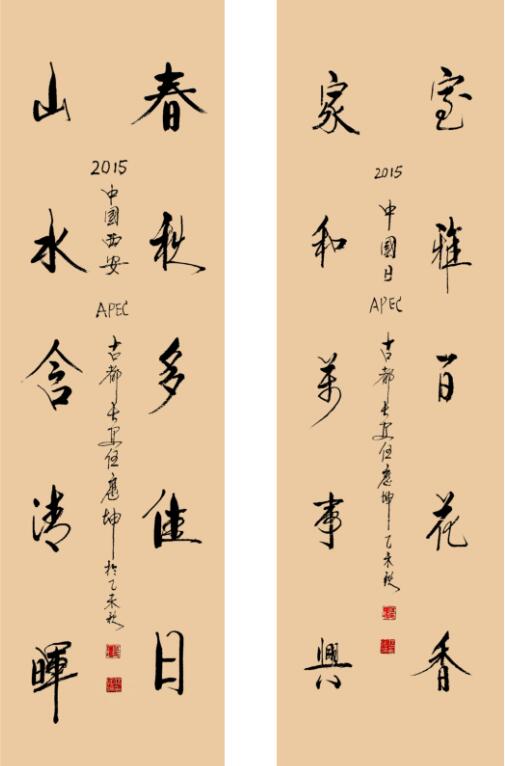 室雅百花香
2015 中國日 APEC 古都長安任應坤乙未秋
家和萬事興
春秋多佳日
2015 中國西安 APEC 古都長安任應坤於乙未秋
山水含清暉